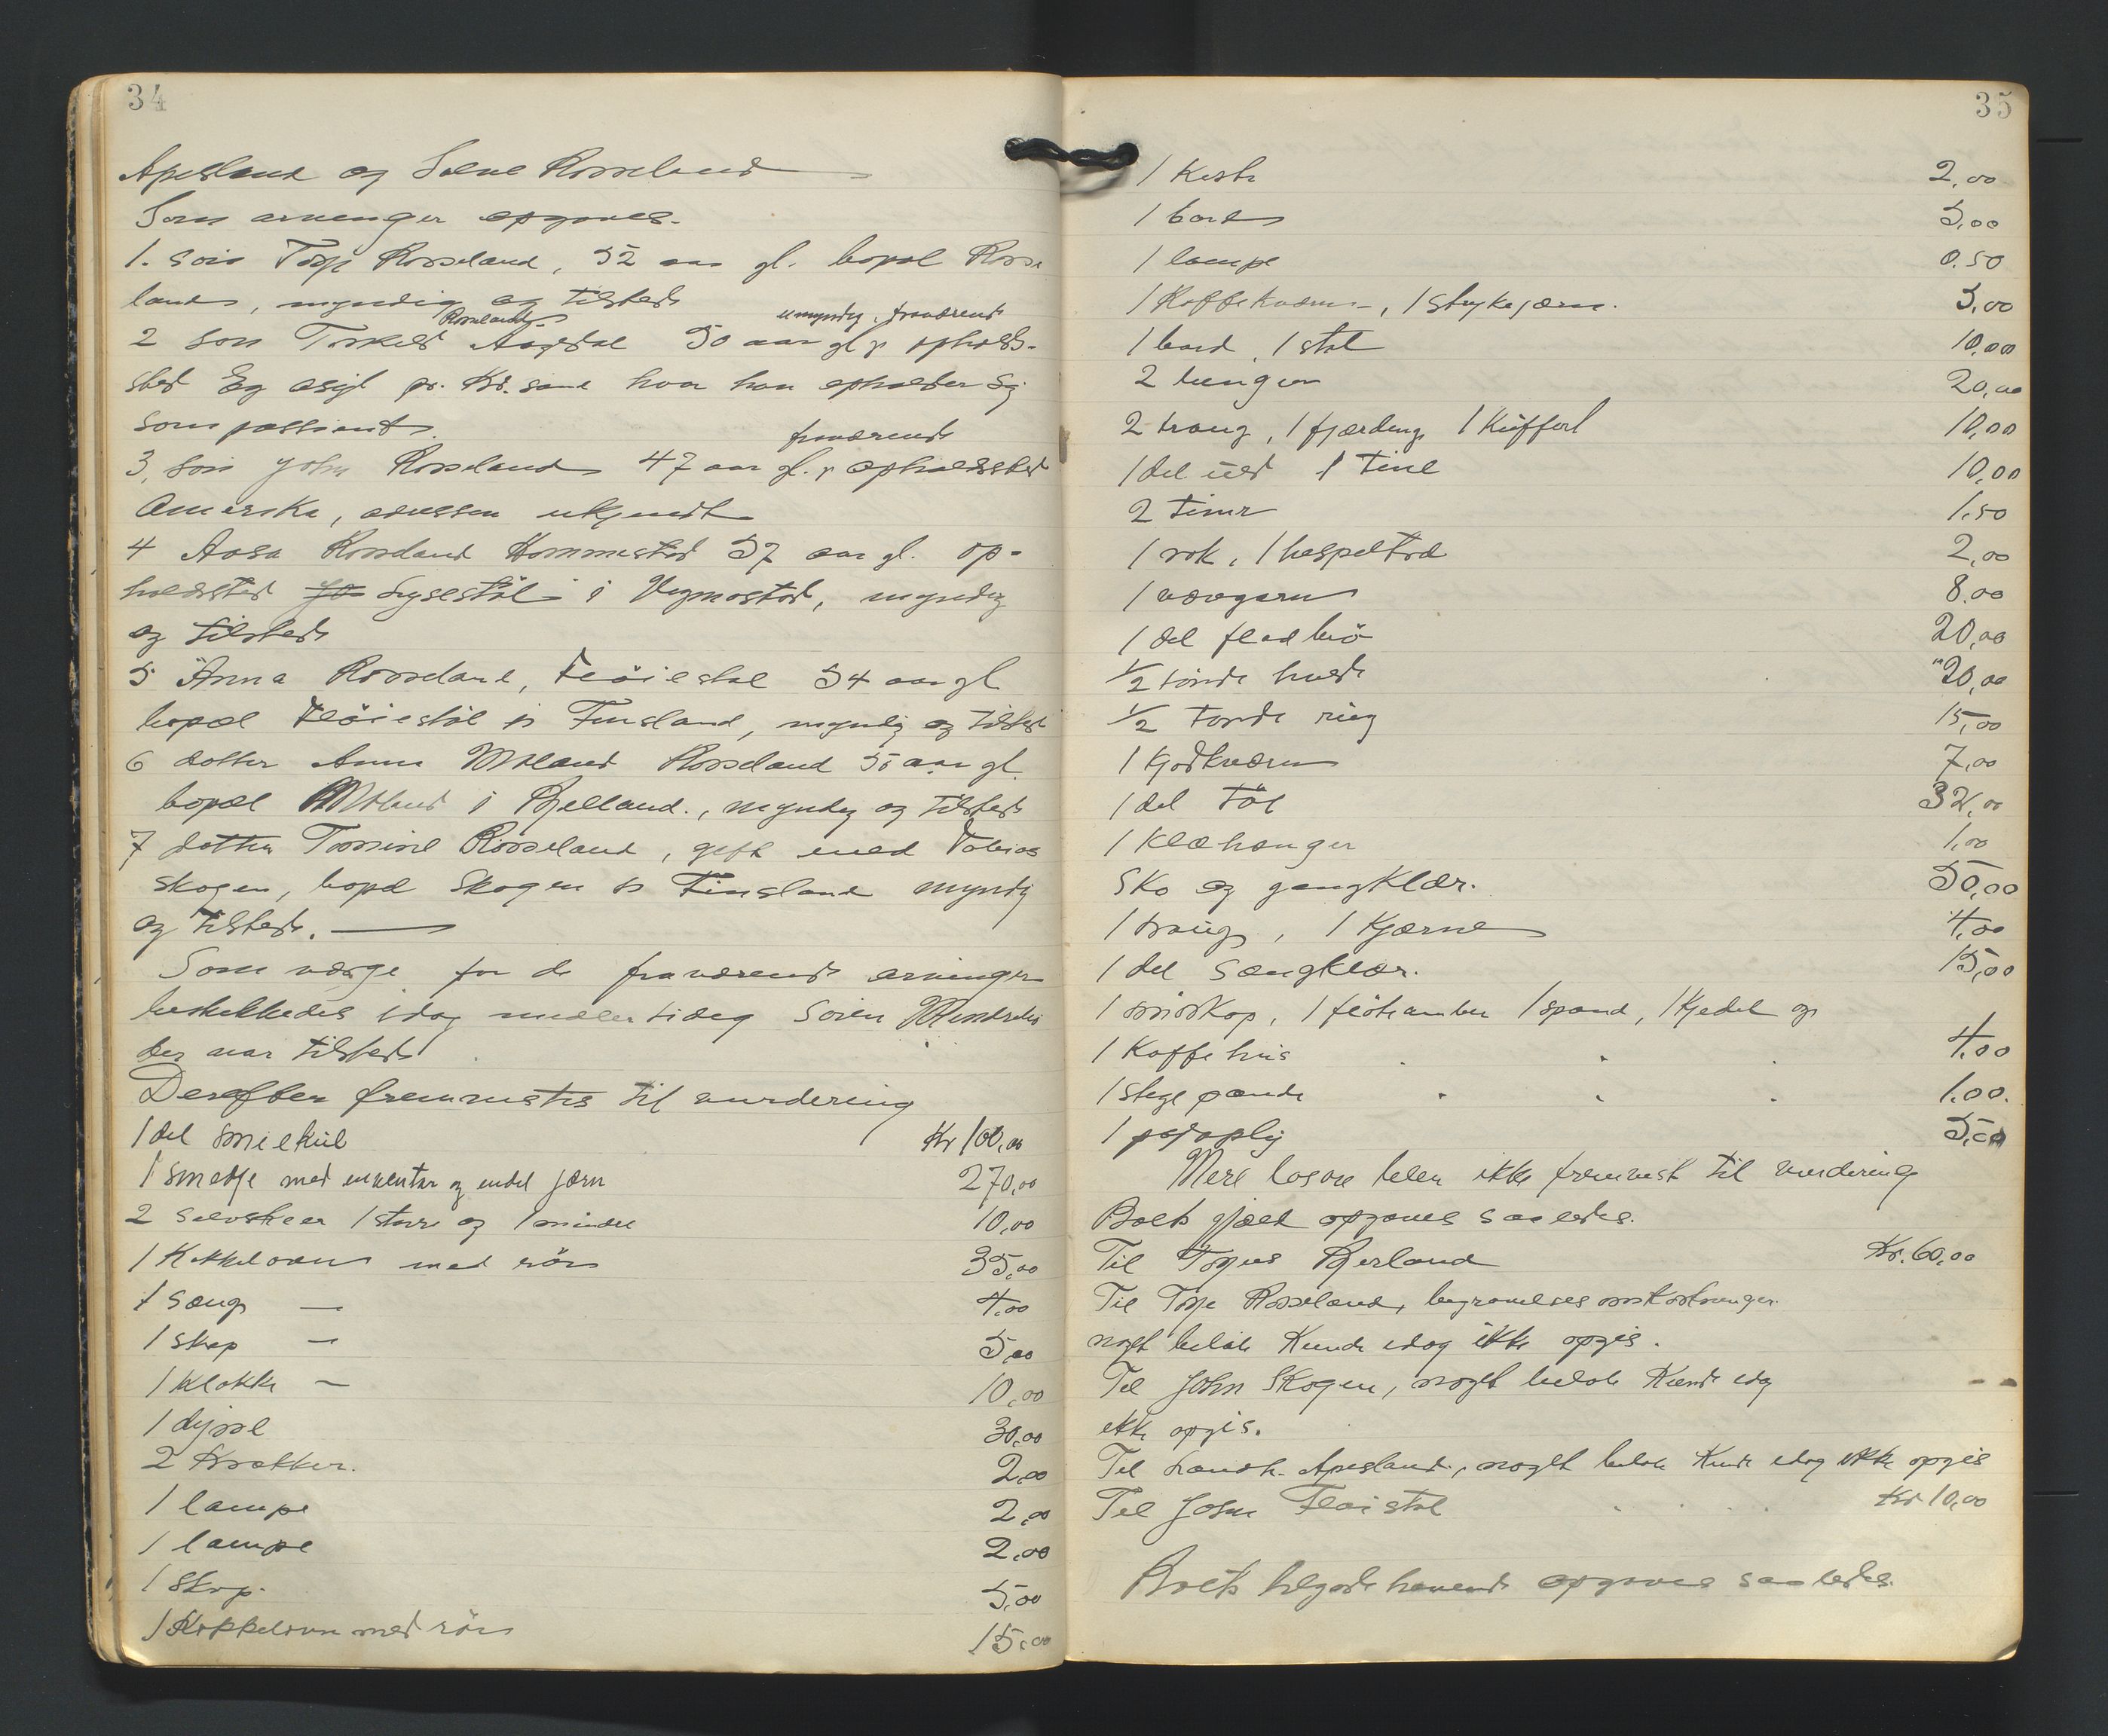 34
Apesland og Rosseland
Som arvinger opgaves.
1. søn Torje Rosseland, 52 aar gl. bopæl Rosse
land, myndig og tilstede
Rosseland umyndig, fraværende
2 søn Torkeld Aagedal 50 aar gl opholds-
sted Eg asyl pr. Kr.sand hvor han opholder sig
som passient.
fraværende
3, søn John Rosseland 47 aar gl. opholdssted
Amerika, adressen ukjendt
4 Aasa Rosseland Hommestad 57 aar gl. op-
holdssted Lysestöl i Vegmostad, myndig
og tilstede
5 Anna Rosseland, Flöiestöl 54 aar gl
bopæl Flöiestöl i Finsland, myndig og tilsted
6 datter Anna Moland Rosseland 50 aar gl.
bopæl Moland i Bjelland., myndig og tilstede
7 datter Tomine Rosseland, gift med Tobias
Skogen, bopæl Skogen i Finsland myndig
og tilstede.
Som værge for de fraværende arvinger
beskikkedes idag midlertidig Sören
der var tilstede
Derefter fremvistes til vurdering
1 del smiekul Kr 100,00
1 smedje med inventar og endel jærn 270,00
2 sølvskeer 1 større og 1 mindre 10,00
1 Kakkelovn med rör 35,00
1 sæng — 4,00
1 skap — 5,00
1 klokke — 10,00
1 dissel 30,00
2 Krakker. 2,00
1 lampe 2,00
1 lampe 2,00
1 Skap. 5,00
1 Kakkelovn med rör 15,00
35
1 Kiste 2,00
1 bord 5,00
1 lampe 0.50
1 Kaffekværn, 1 strykejærn. 5,00
1 bord, 1 stol 10,00
2 tunger 20,00
2 traug, 1 fjærding 1 Kuffert 10,00
1 del uld 1 tine 10,00
2 tiner 1,50
1 rok, 1 hespeltræ 2,00
1 vævgarn 8.00
1 del fladbrö 20,00
1/2 tönde hvede 20,00
1/2 tönde rug 15,00
1 Kjødkværn 7,00
1 del töi 32,00
1 Klæhænger 1,00
Sko og gangklær. 50,00
1 traug, 1 Kjærne 4,00
1 del sængklær. 15,00
1 smörkop, 1 flöteamber 1 spand, 1 Kjedel og
1 Kaffehus 4,00
1 stegepande 1.00.
1 5,00
Mere lösöre blev ikke fremvist til vurdering
Boets gjæld opgaves saaledes.
Til Torjus Bjerland Kr. 60,00
Til Torje Rosseland, begravelses omkostninger.
noget belöb Kunde idag ikke opgis.
Til John Skogen, noget belöb Kunde idag
ikke opgis.
Til Apesland, noget belöb Kunde idag ikke opgis
Til John Flöistöl Kr 10,00
Boets tilgodehavende opgaves saaledes.